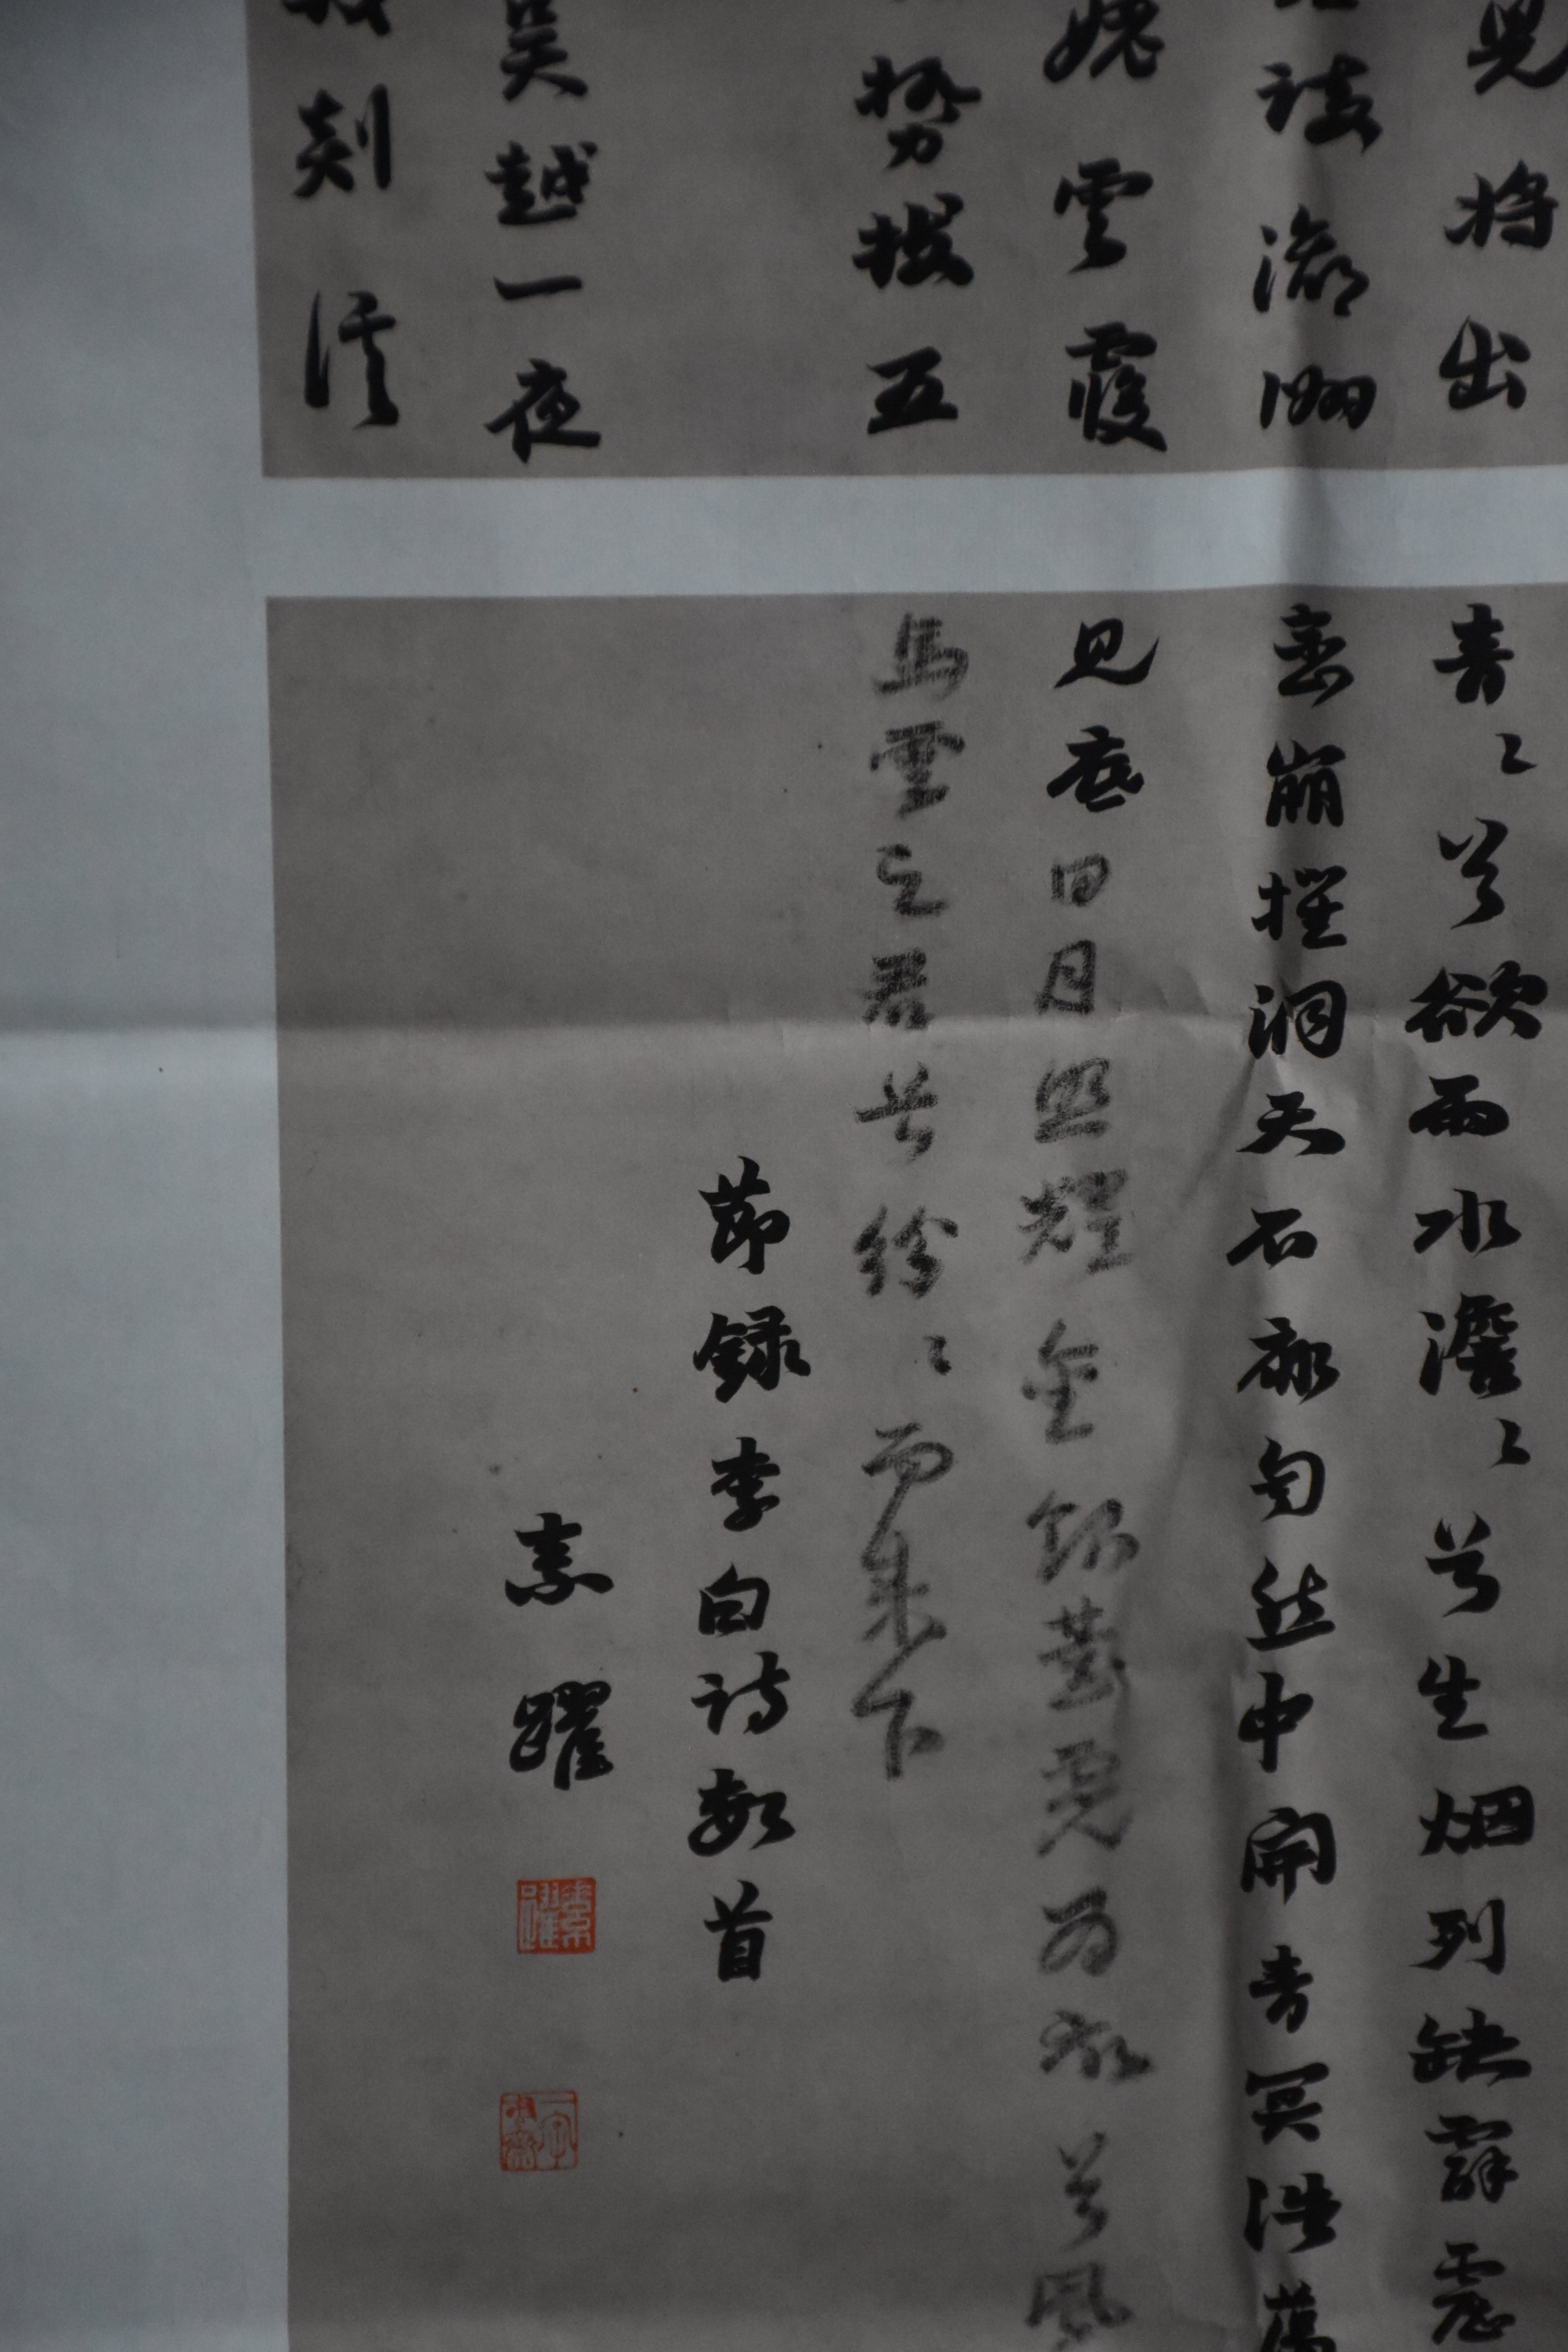 將出
談瀛洲
姥雲霞
勢拔五
吳越一夜
剡溪
青〻兮欲雨水澹〻兮生烟列缺霹靂
巒崩摧洞天石扉訇然中開青冥浩蕩
見底日月照耀金銀臺霓為衣兮風
馬雲之君兮紛〻而来下
節録李白詩数首
素躍
素躍